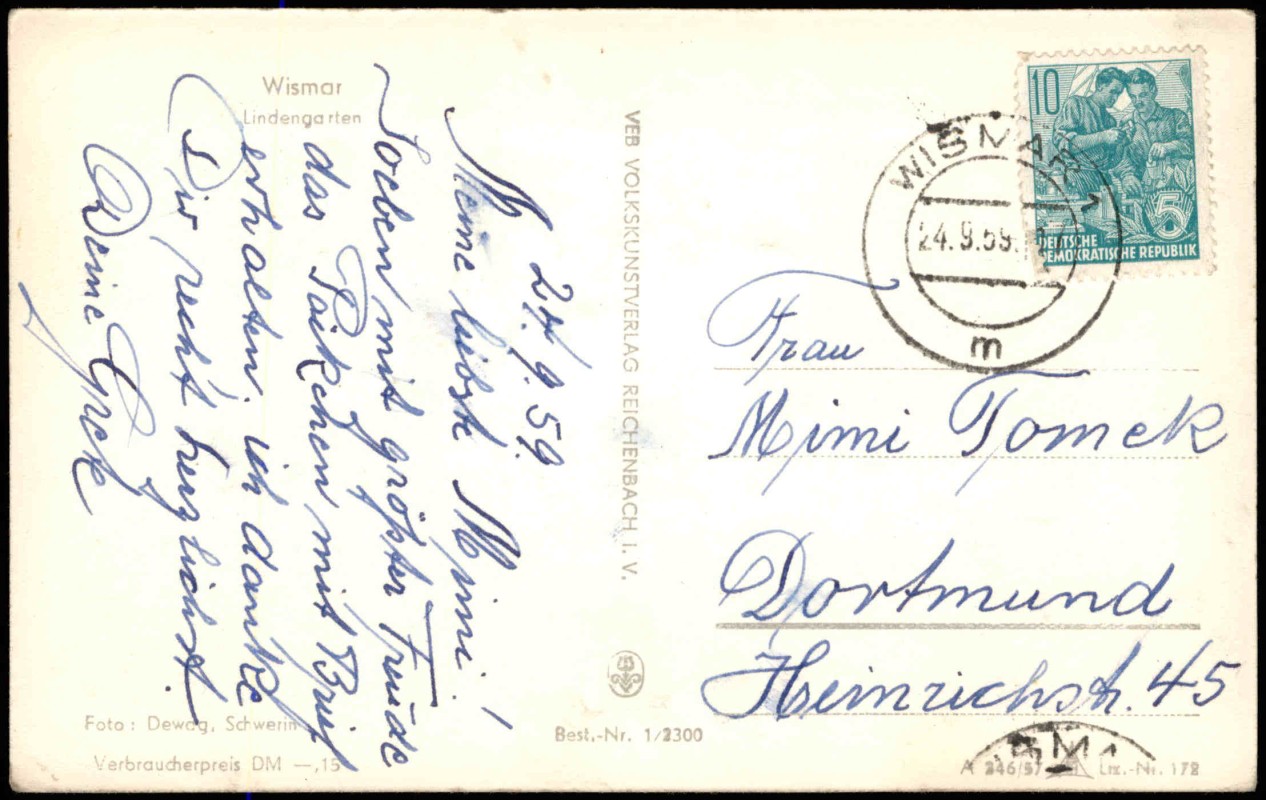 Wismar
Lindengarten
24.9.59
Meine liebste Mimi!
Soeben mit größter Freude
das Päckchen mit Brief
erhalten. ich danke
Dir recht herzlichst.
Deine
VEB VOLKSKUNSTVERLAG REICHENBACH I. V.
10
5
DEUTSCHE
DEMOKRATISCHE REPUBLIK
WISMAR 1
24.9.59.
m
Frau
Mimi Tomek
Dortmund
Heinrichstr. 45
Foto: Dewag, Schwerin
Verbraucherpreis DM —,15
Best.-Nr. 1/2300
A 246/57
Liz.-Nr. 172